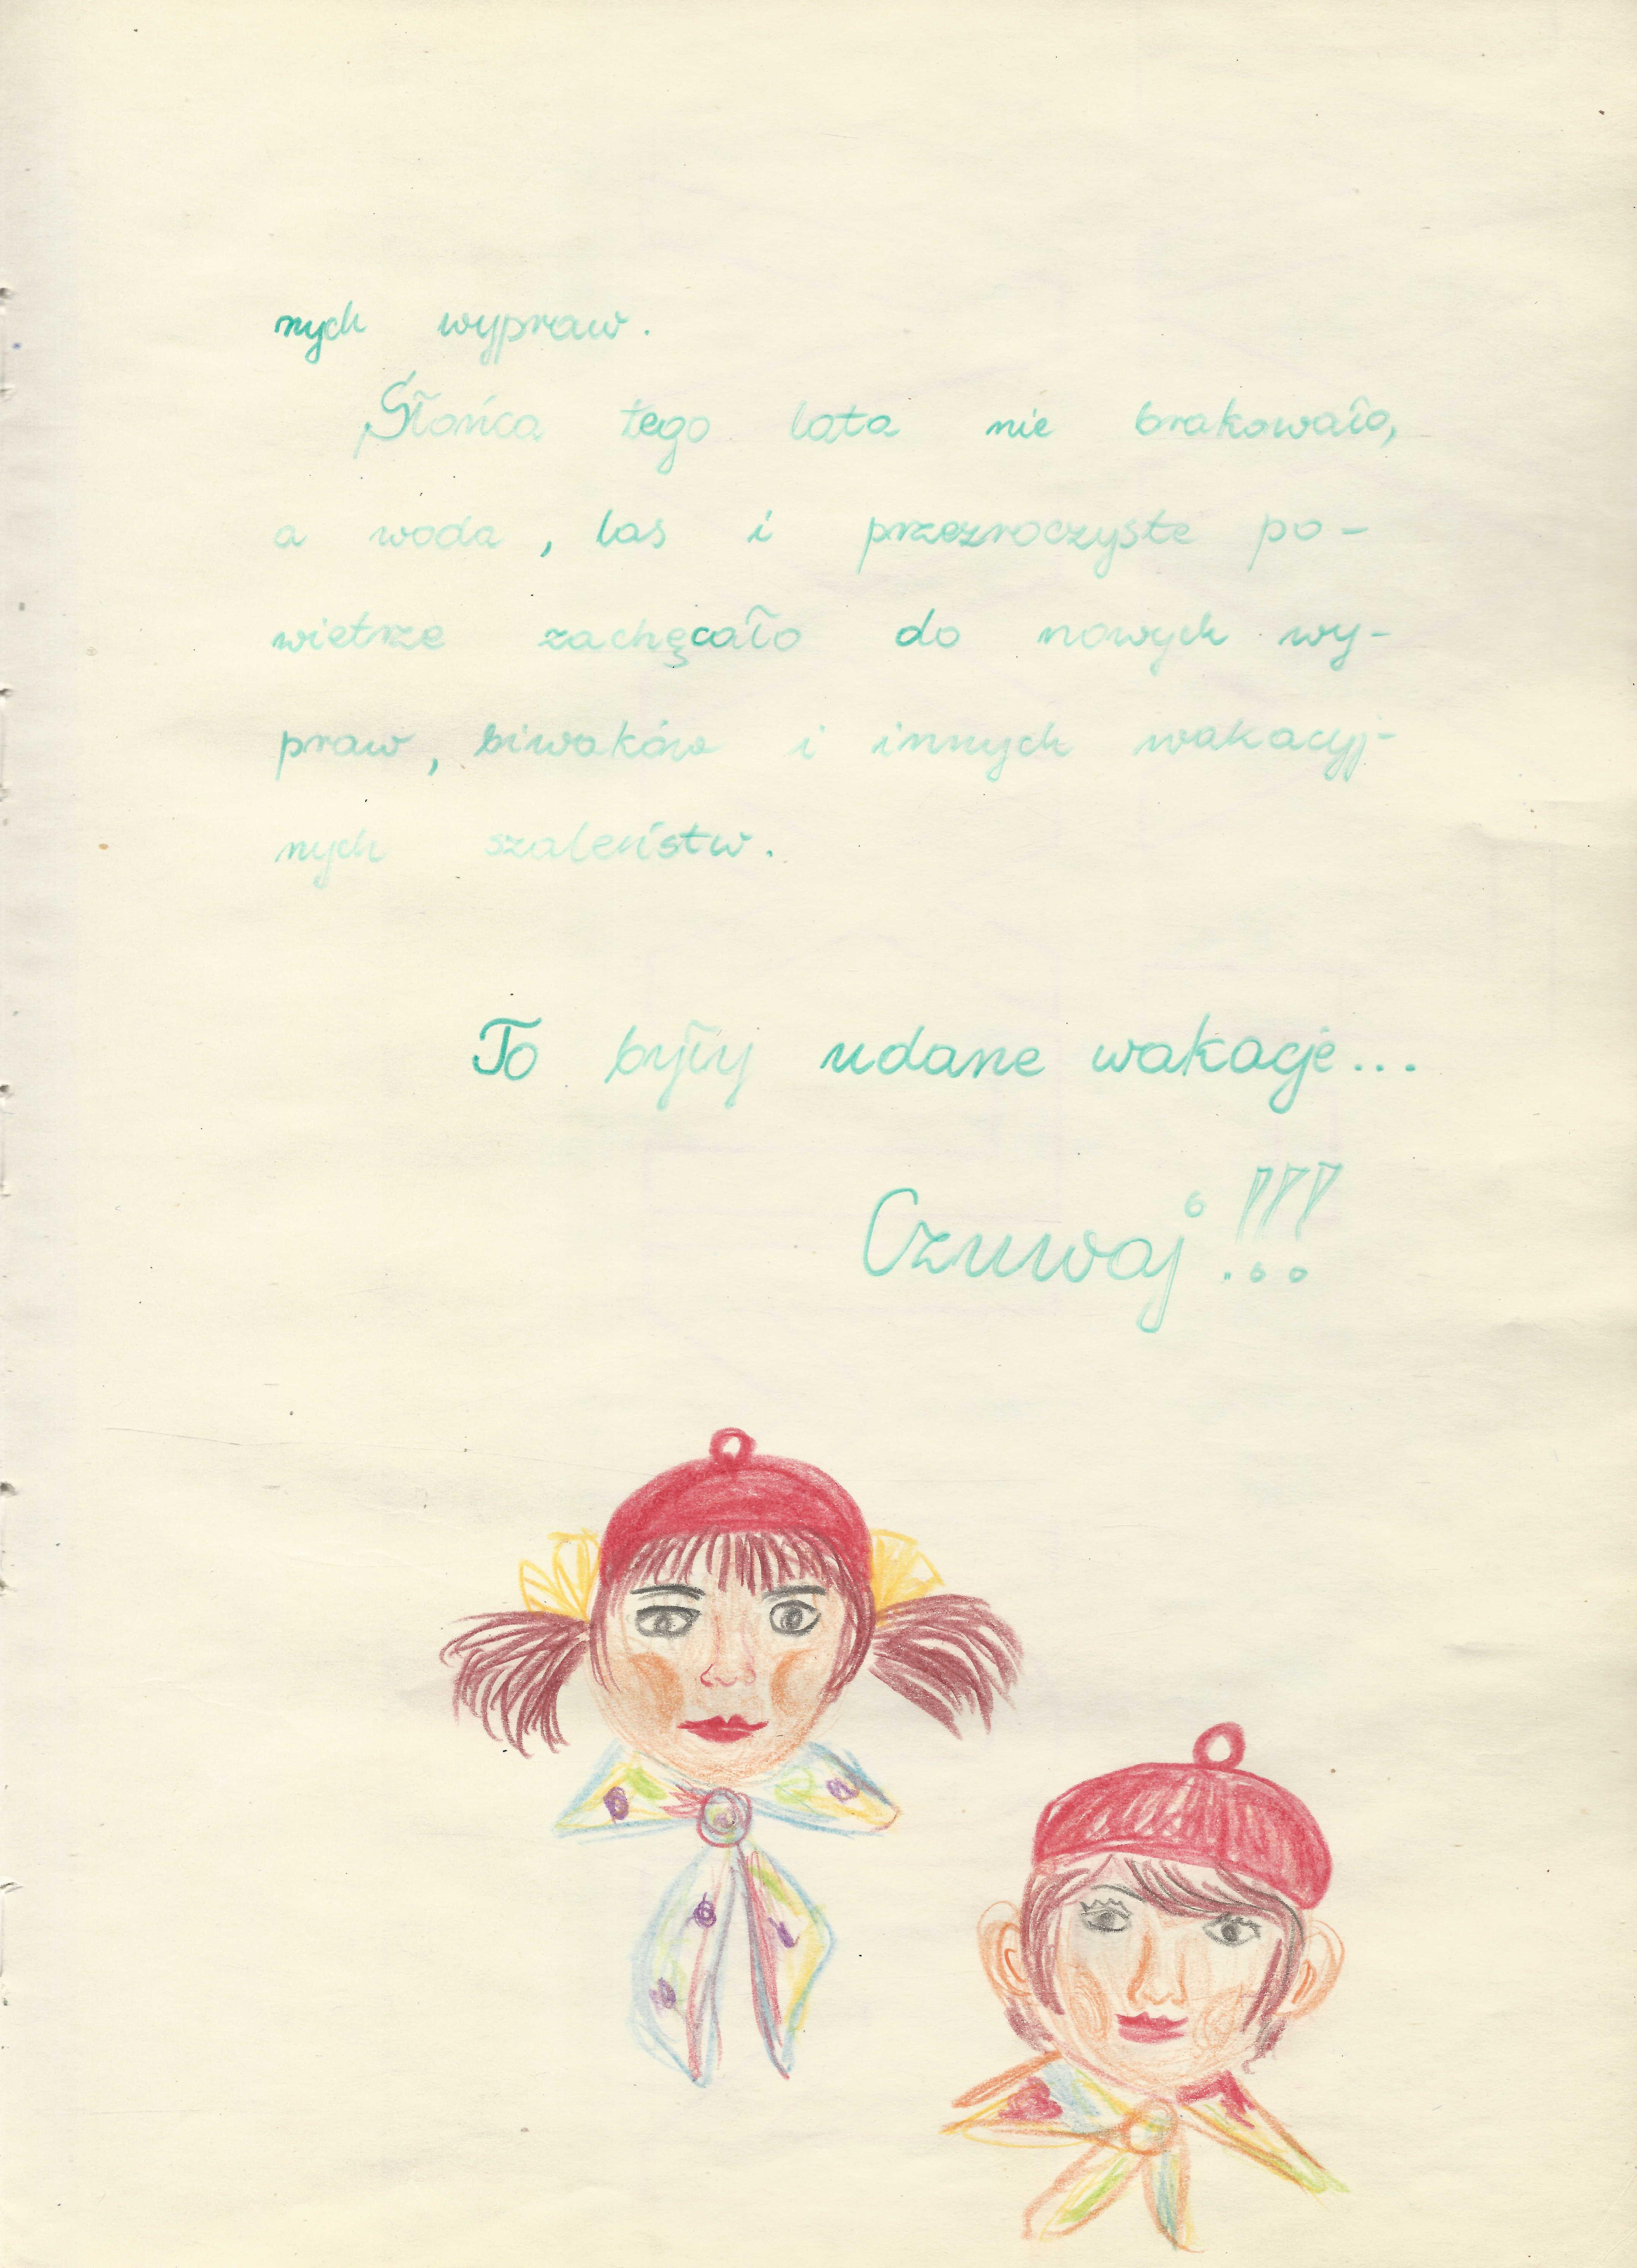 nych wypraw.
Słońca tego lata nie brakowało,
a woda, las i przezroczyste po-
wietrze zachęcało do nowych wy-
praw, biwaków i innych wakacyj-
nych szaleństw.
To były udane wakacje...
Czuwaj!!!